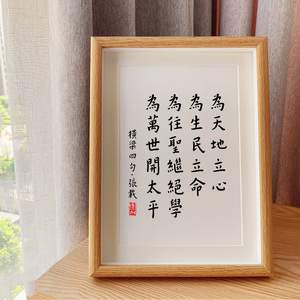 為天地立心
為生民立命
為往聖繼絕學
為萬世開太平
橫梁四句·張載